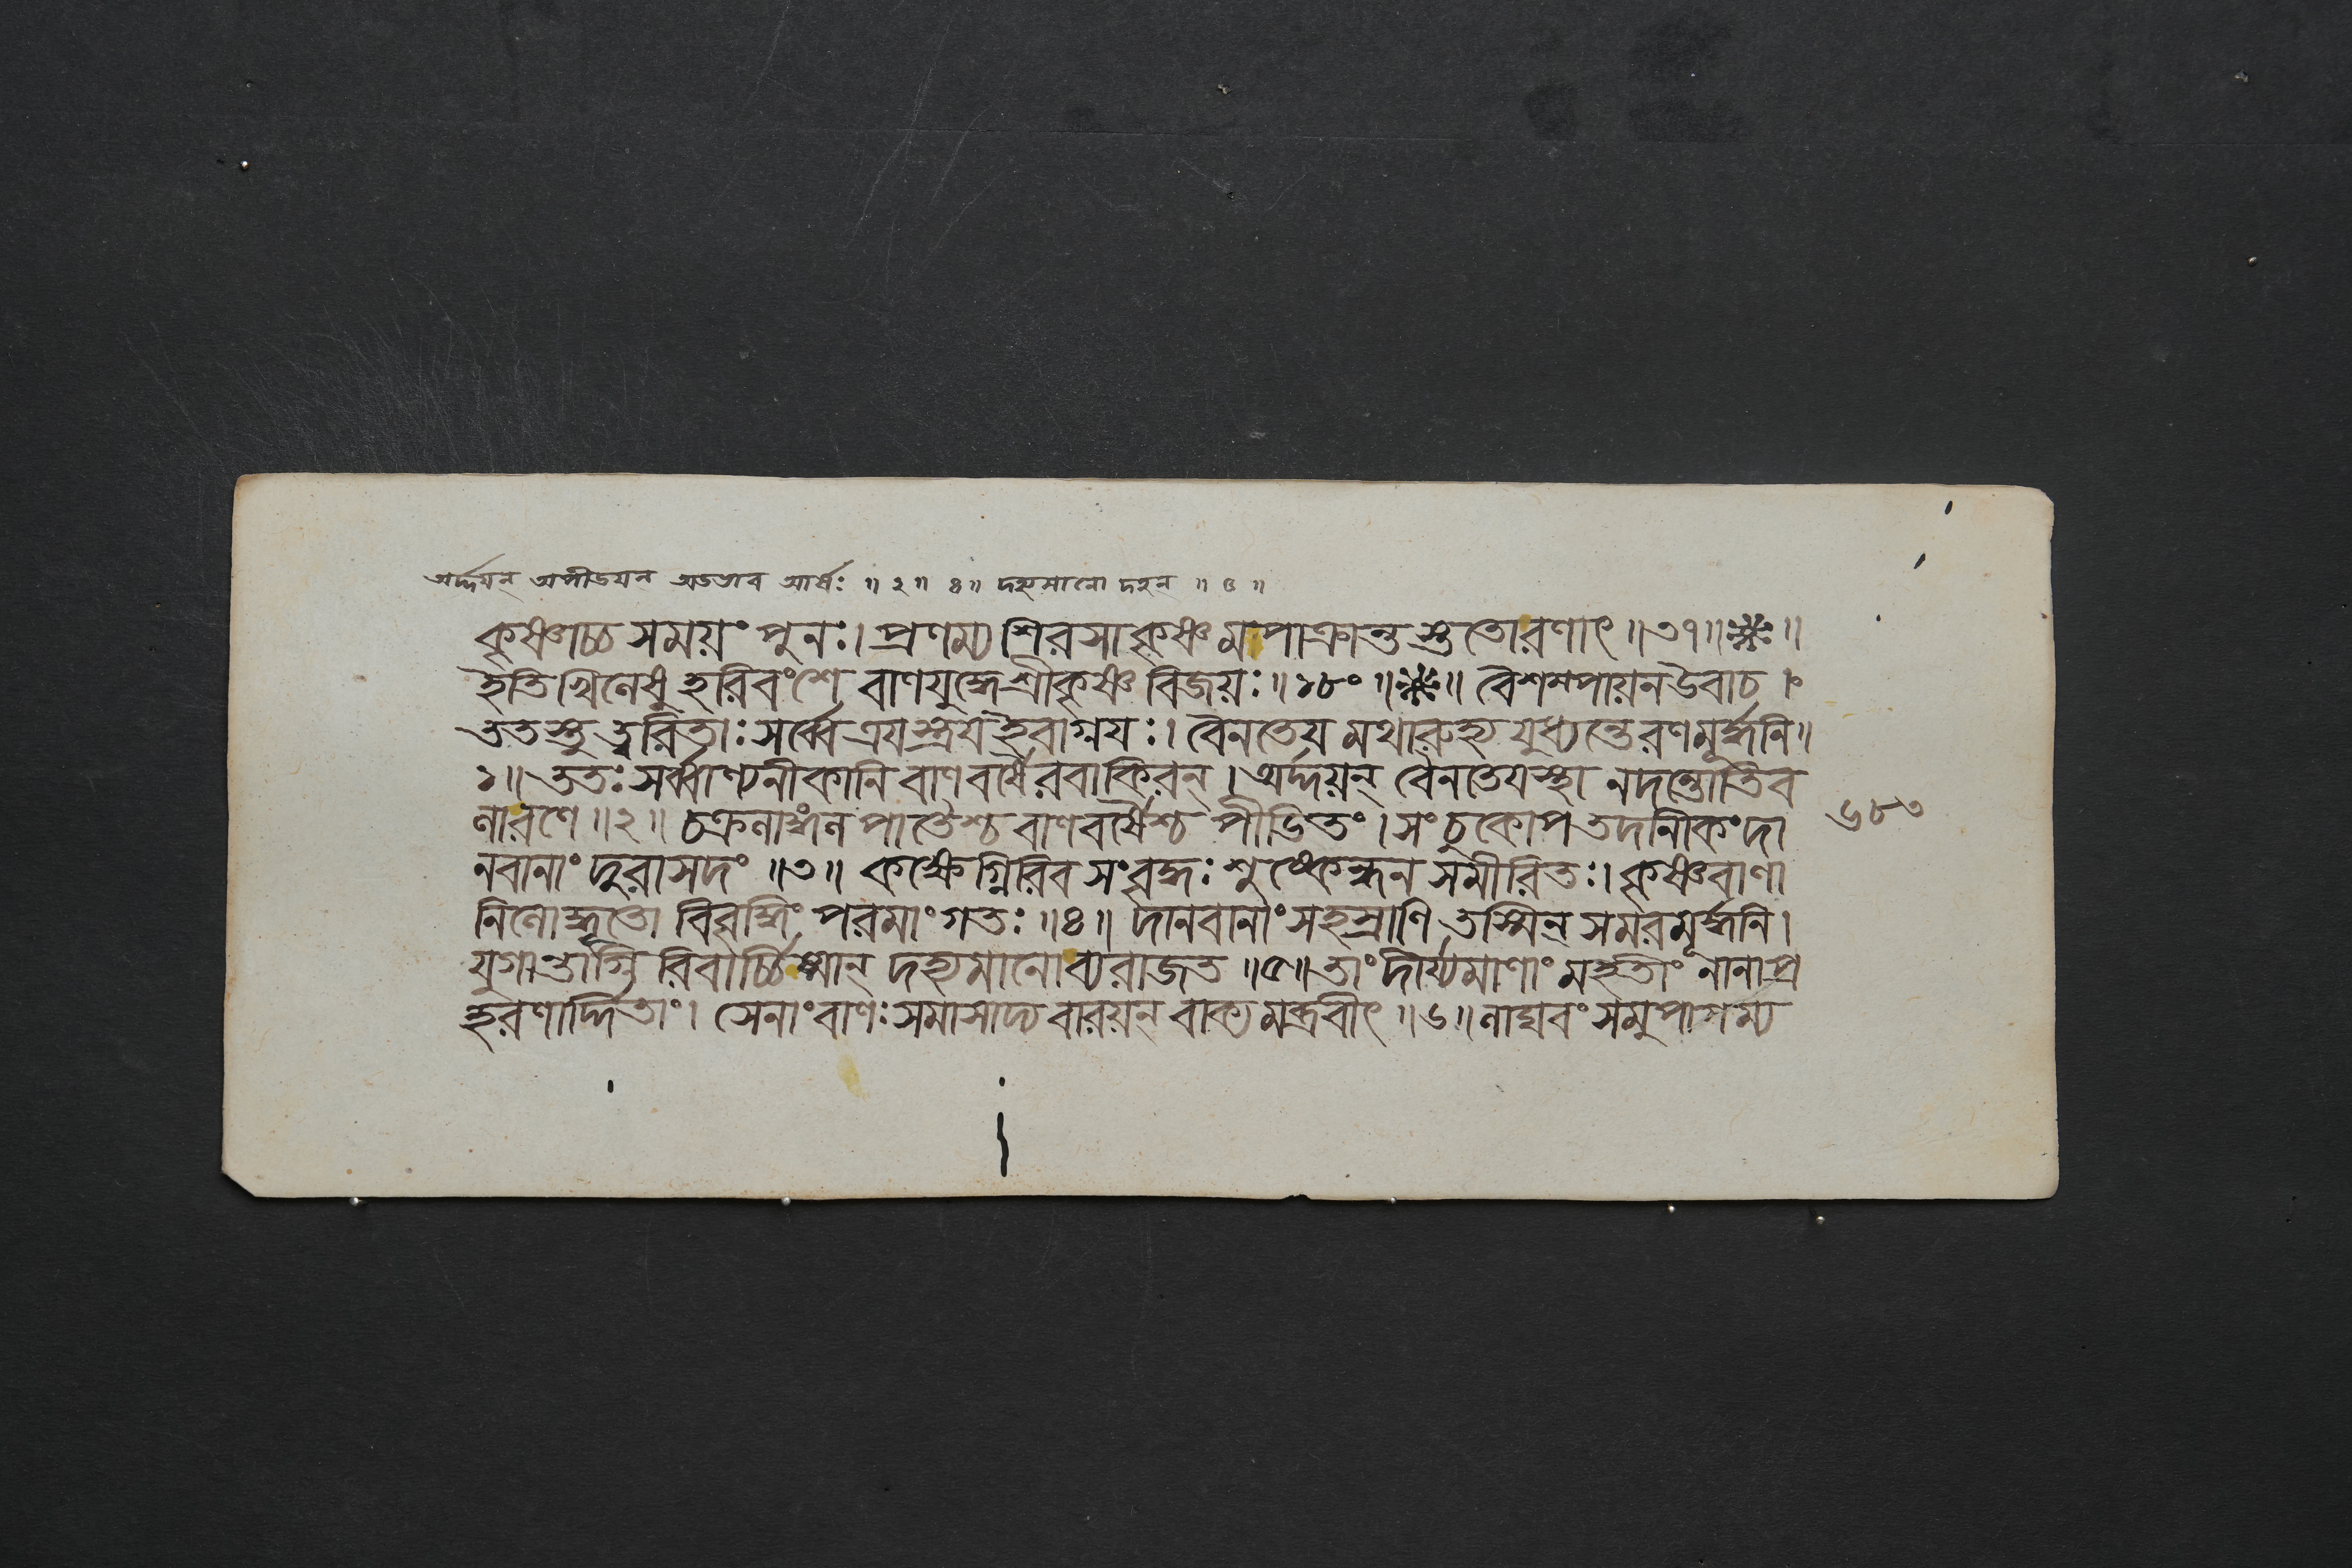 অর্দ্দয়ন্ অপীডয়ন্ অডভাব আর্ষঃ ॥ ২ ॥ ৪ ॥ দহ্যমানো দহন্ ॥ ৫ ॥
কৃষ্ণাচ্চ সময়ং পুনঃ। প্রণম্য শিরসা কৃষ্ণ মপাক্রান্ত স্ততোরণাৎ ॥ ৩৭ ॥ ॥
ইতি খিলেষু হরিবংশে বাণযুদ্ধে শ্রীকৃষ্ণ বিজয়ঃ ॥ ১৮০ ॥ ॥ বৈশম্পায়ন উবাচ ।
ততস্তু ত্বরিতাঃ সর্ব্বে ত্রয়স্ত্রয় ইবাগ্নয়ঃ। বৈনতেয় মথারুহ্য যুধ্যন্তে রণমূর্দ্ধনি ॥
১ ॥ ততঃ সর্ব্বাণ্যনীকানি বাণবর্ষৈরবাকিরন্ । অর্দ্দয়ন্ বৈনতেয়স্থা নদন্তোতিব
লারণে ॥ ২ ॥ চক্রলাঙ্গলপাতৈশ্চ বাণবর্ষৈশ্চ পীডিতং। সংচুকোপ তদনীকং দা
নবানাং দুরাসদং ॥ ৩ ॥ কক্ষেগ্নিরিব সংবৃদ্ধঃ শুষ্কেন্ধন সমীরিতঃ। কৃষ্ণবাণা
নিলোদ্ধূতো বিবৃদ্ধিং পরমাং গতঃ ॥ ৪ ॥ দানবানাং সহস্রাণি তস্মিন্ সমরমূর্দ্ধনি ।
যুগান্তাগ্নি রিবার্চ্চিষ্মান্ দহ্যমানো ব্যরাজত ॥ ৫ ॥ তাং দীর্য্যমাণাং মহতীং নানাপ্র
হরণার্দ্দিতাং। সেনাং বাণঃ সমাসাদ্য বারয়ন্ বাক্য মব্রবীৎ ॥ ৬ ॥ লাঘবং সমুপাগম্য
৬৮৩